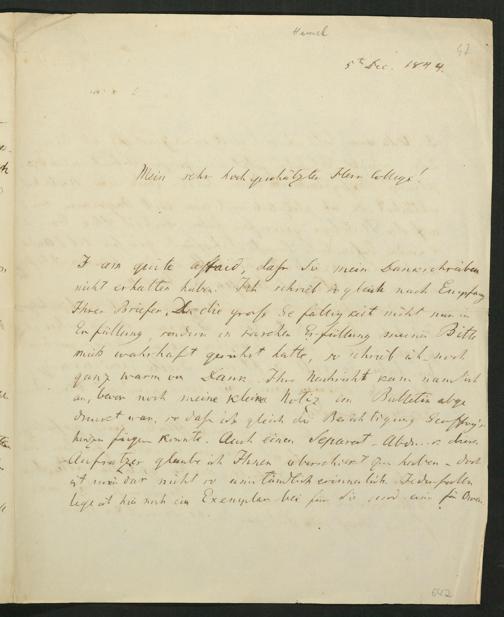 42
5th Dec. 1844.
Mein sehr hochgeschätzter Herr College!
I am quite affraid, dafs Sie mein Dankschreiben
nicht erhalten haben. Ich schrieb sogleich nach Empfang
Ihres Briefes. Da die große Gefälligkeit nicht nur in
Erfüllung sondern in raschen Erfüllung meiner Bitte
mich wahrhaft gerührt hatte, so schrieb ich noch
ganz warm von Dank. Ihre Nachricht kam nämlich
an, bevor noch meine kleine Notiz im Bulletin abge
druckt war, so dafs ich gleich die Berichtigung
hinzufügen konnte. Auch einen Separat-Abdruck dieses
Aufsatzes glaube ich Ihnen überschickt zu haben – doch
ist mir das nicht so umständlich erinnerlich. Jedenfalls
lege ich hie noch ein Exemplar bei für Sie und ein für Owen.
642